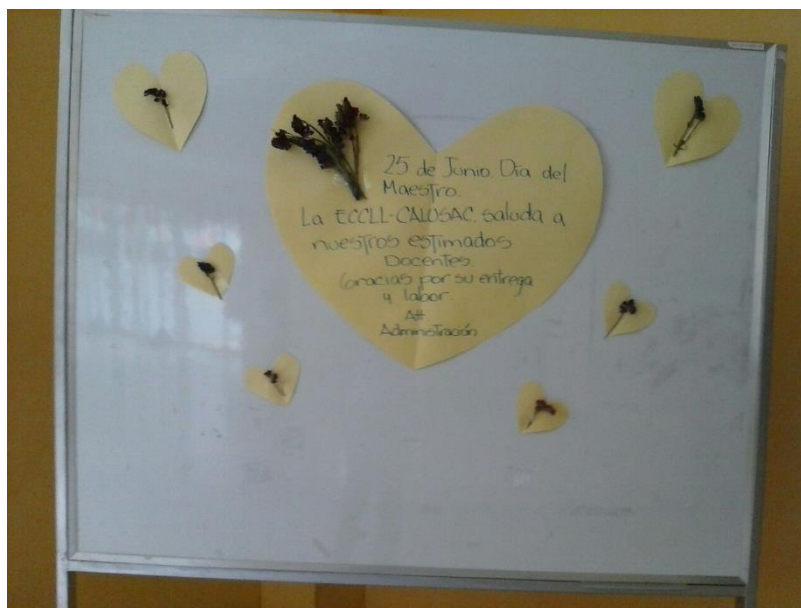 25 de Junio Día del
Maestro.
La ECCLL-CALUSAC, saluda a
nuestros estimados
Docentes.
Gracias por su entrega
y labor.
Att
Administración